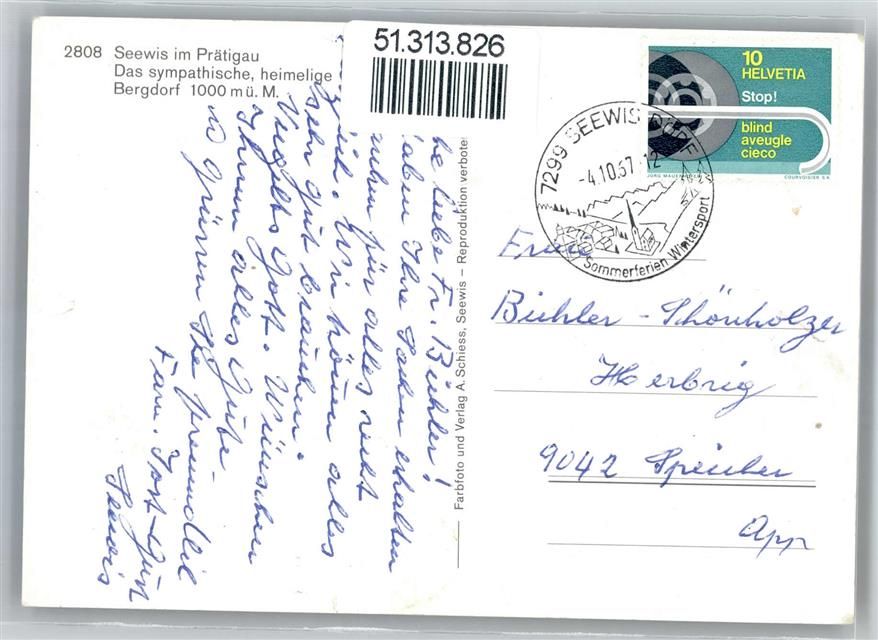 2808 Seewis im Prätigau
Das sympathische, heimelige
Bergdorf 1000 m ü. M.
51.313.826
10
HELVETIA
Stop!
blind
aveugle
cieco
COURVOISIER S.A.
7299 SEEWIS DORF
-4.10.67-12
Sommerferien Wintersport
liebe Fr. Bühler!
haben Ihre Sachen erhalten
für alles recht
Wir können alles
sehr gut brauchen.
Vergelts Gott. Wünschen
Ihnen alles Gute
grüssen Sie freundlich
Fam. Jost
Seewis
Farbfoto und Verlag A. Schiess, Seewis – Reproduktion verboten
Frau
Bühler - Schönholzer
Herbrig
9042 Speicher
App